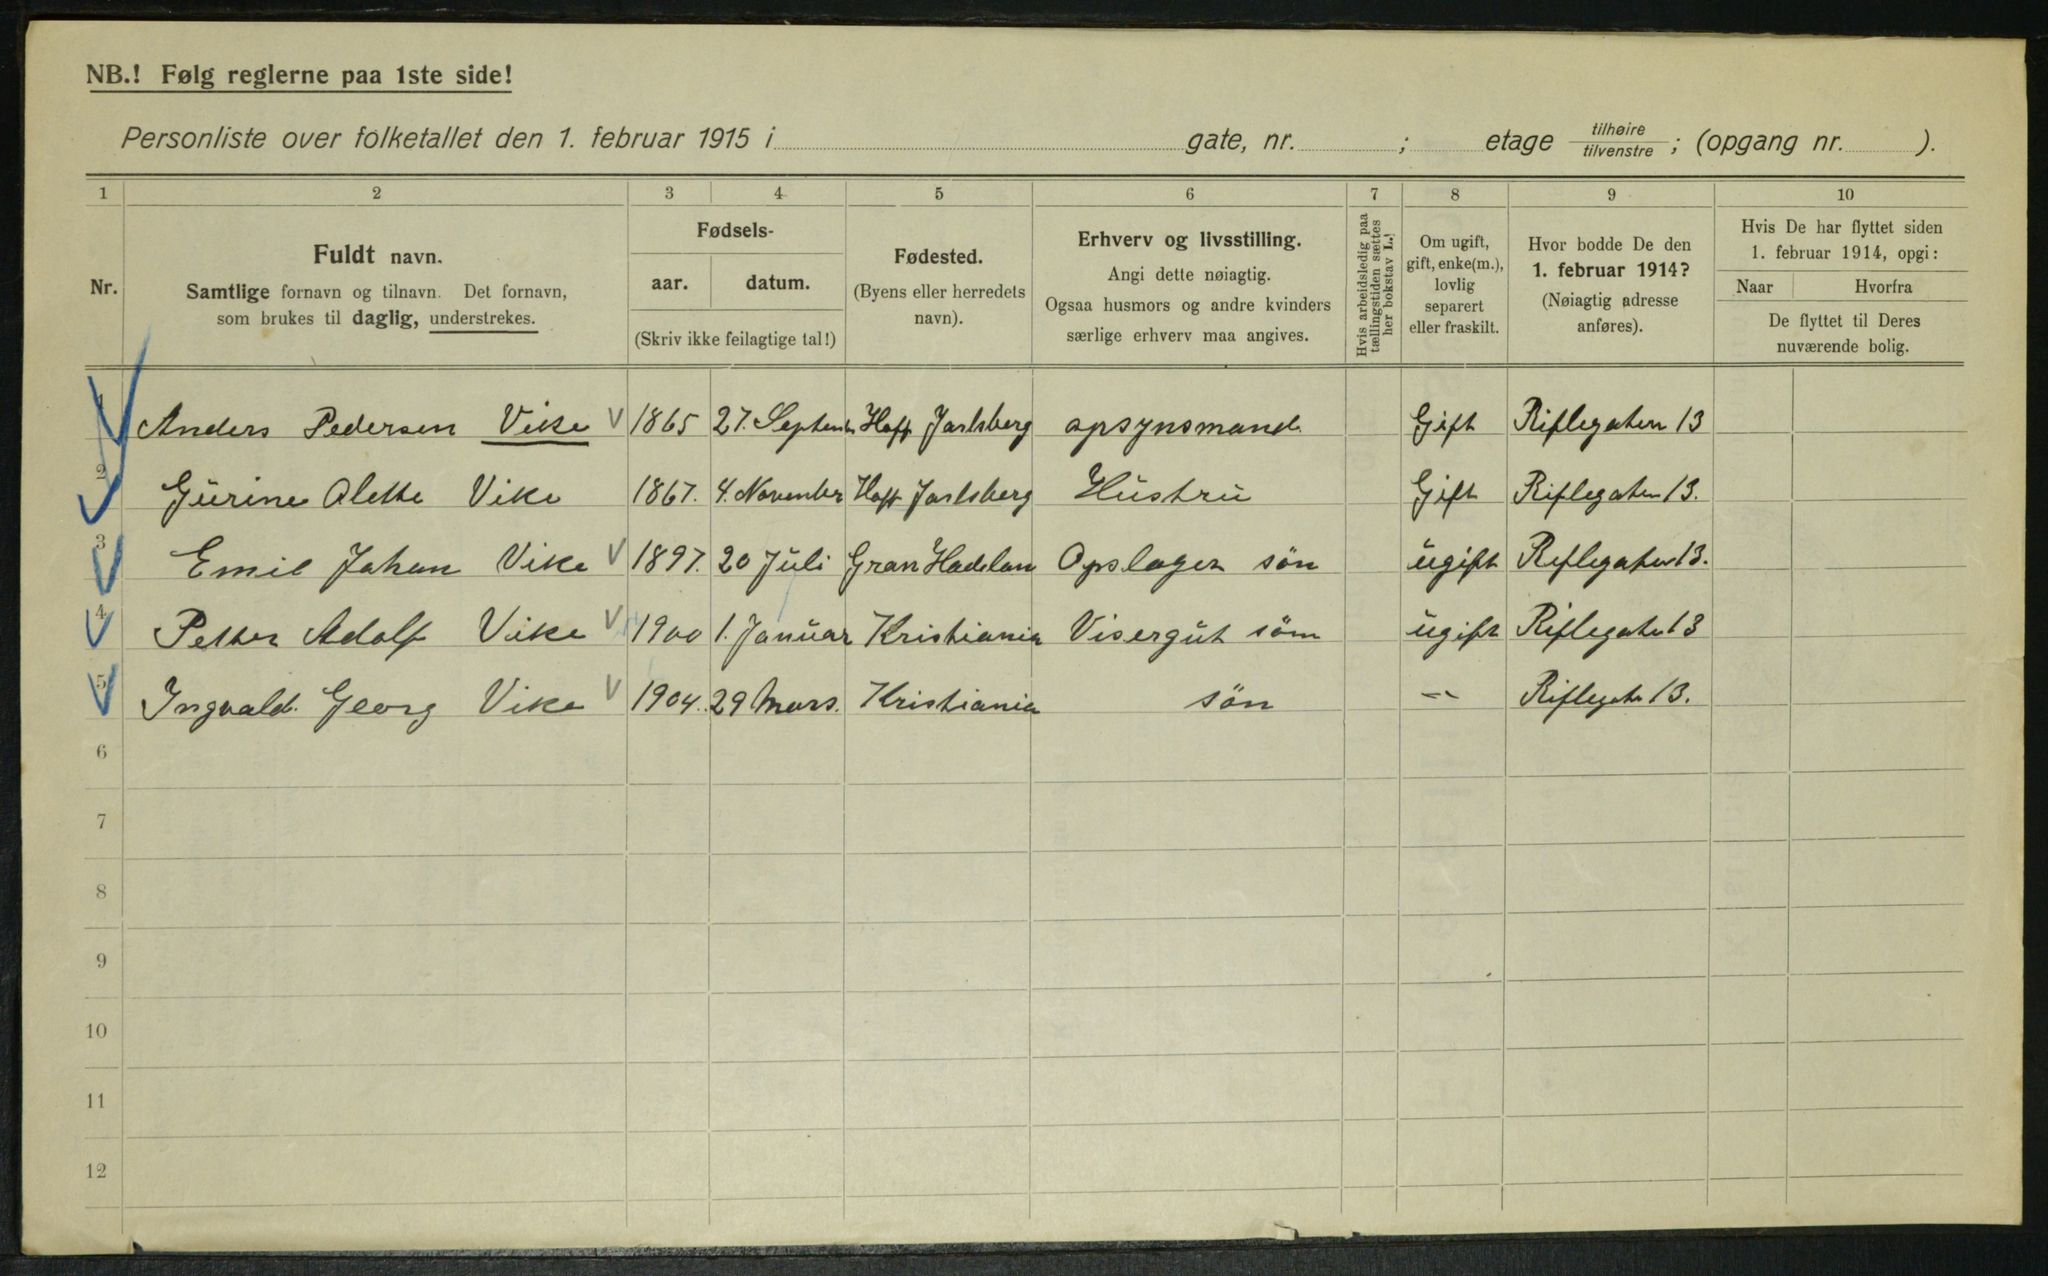 NB.! Følg reglerne paa 1ste side!
Personliste over folketallet den 1. februar 1915 i gate, nr. ; etage tilhøire tilvenstre ; (opgang nr. ).
1 2 3 4 5 6 7 8 9 10
Nr.
Fuldt navn.
Samtlige fornavn og tilnavn. Det fornavn,
som brukes til daglig, understrekes.
Fødsels-
aar. datum.
(Skriv ikke feilagtige tal!)
Fødested.
(Byens eller herredets
navn).
Erhverv og livsstilling.
Angi dette nøiagtig.
Ogsaa husmors og andre kvinders
særlige erhverv maa angives.
Hvis arbeidsledig paa
tællingstiden sættes
her bokstav L.!
Om ugift,
gift, enke(m.),
lovlig
separert
eller fraskilt.
Hvor bodde De den
1. februar 1914?
(Nøiagtig adresse
anføres).
Hvis De har flyttet siden
1. februar 1914, opgi:
Naar Hvorfra
De flyttet til Deres
nuværende bolig.
1 Anders Pedersen Vike V 1865 27. Septemb Hoff Jarlsberg opsynsmand. Gift Riflegaten 13
2 Gurine Alette Vike 1867. 4. November Hoff Jarlsberg Hustru Gift Riflegaten 13.
3 Emil Johan Vike V 1897. 20 Juli Gran Hadelan Opslager sön ugift Riflegaten 13.
4 Petter Adolf Vike V 1900 1. Januar Kristiania Visergut sön ugift Riflegaten 13
5 Ingvald. Georg Vike V 1904. 29 Mars. Kristiania sön -"- Riflegate 13.
6
7
8
9
10
11
12